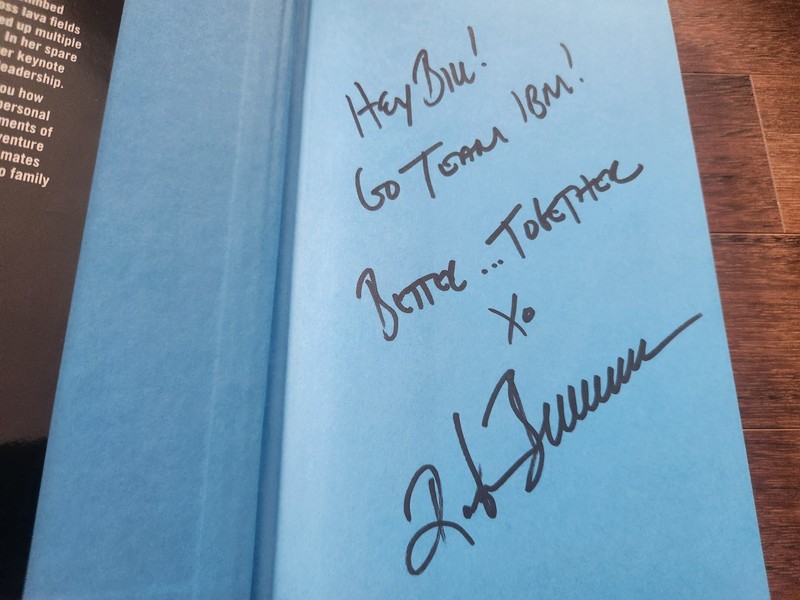 oss lava fields
ed up multiple
In her spare
er keynote
eadership.
ou how
personal
ments of
venture
mates
o family
HEY BILL!
GO TEAM IBM!
BETTER ... TOGETHER
XO